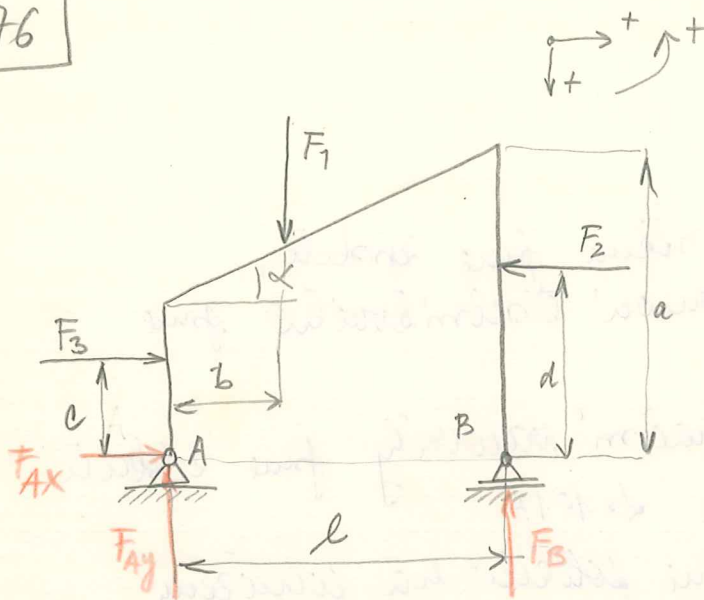 76
+
+
+
F₁
α
F₂
a
F₃
b
d
c
A
B
F_AX
F_Ay
l
F_B